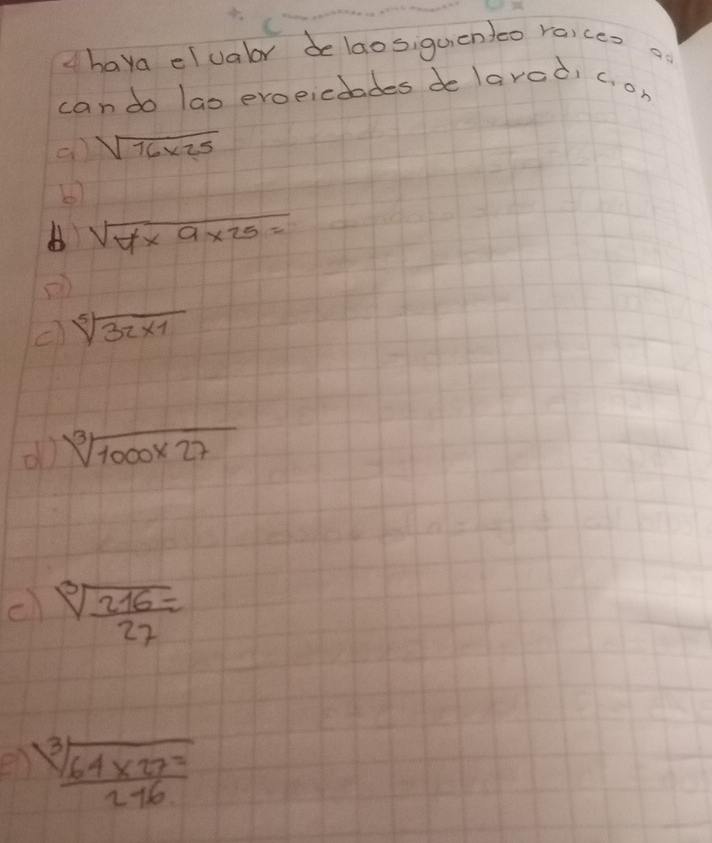 4 haya el valor de las siguientes raices a
cando las propiedades de la radicion
a) √16x25
b)
b) √4x 9x25=
c) ⁵√32x1
d) ³√1000x27
e) ³√216=
27
e) ³√64x27=
216